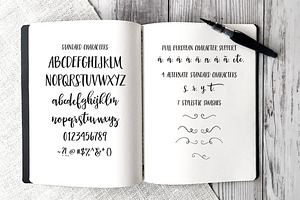 STANDARD CHARACTERS
ABCDEFGHIJKLM
NOPQRSTUVWXYZ
abcdefghijklm
nopqrstuvwxyz
0123456789
FULL EUROPEAN CHARACTER SUPPORT
etc.
4 ALTERNATE STANDARD CHARACTERS
s. x. y. t.
7 STYLISTIC SWASHES